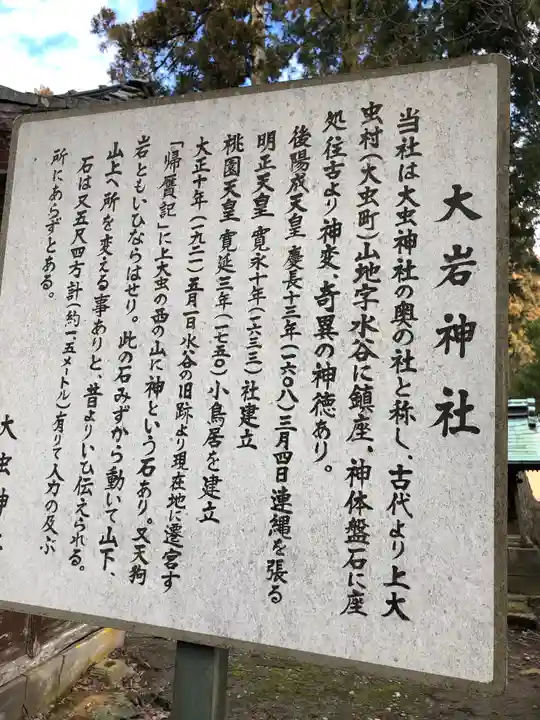 大岩神社
当社は大虫神社の奥の社と称し、古代より上大
虫村(大虫町)山地字水谷に鎮座、神体盤石に座
処往古より神変、奇異の神徳あり。
後陽成天皇 慶長十三年(一六〇八)三月四日連縄を張る
明正天皇 寛永十年(一六三三)社建立
桃園天皇 寛延三年(一七五〇)小鳥居を建立
大正十年(一九二一)五月一日水谷の旧跡より現在地に遷宮す
「帰鴈記」に上大虫の西の山に神という石あり。又天狗
岩ともいひならはせり。此の石みずから動いて山下、
山上へ所を変える事ありと、昔よりいひ伝えられる。
石は又五尺四方計(約一.五メートル)有りて人力の及ぶ
所にあらずとある。
大虫神